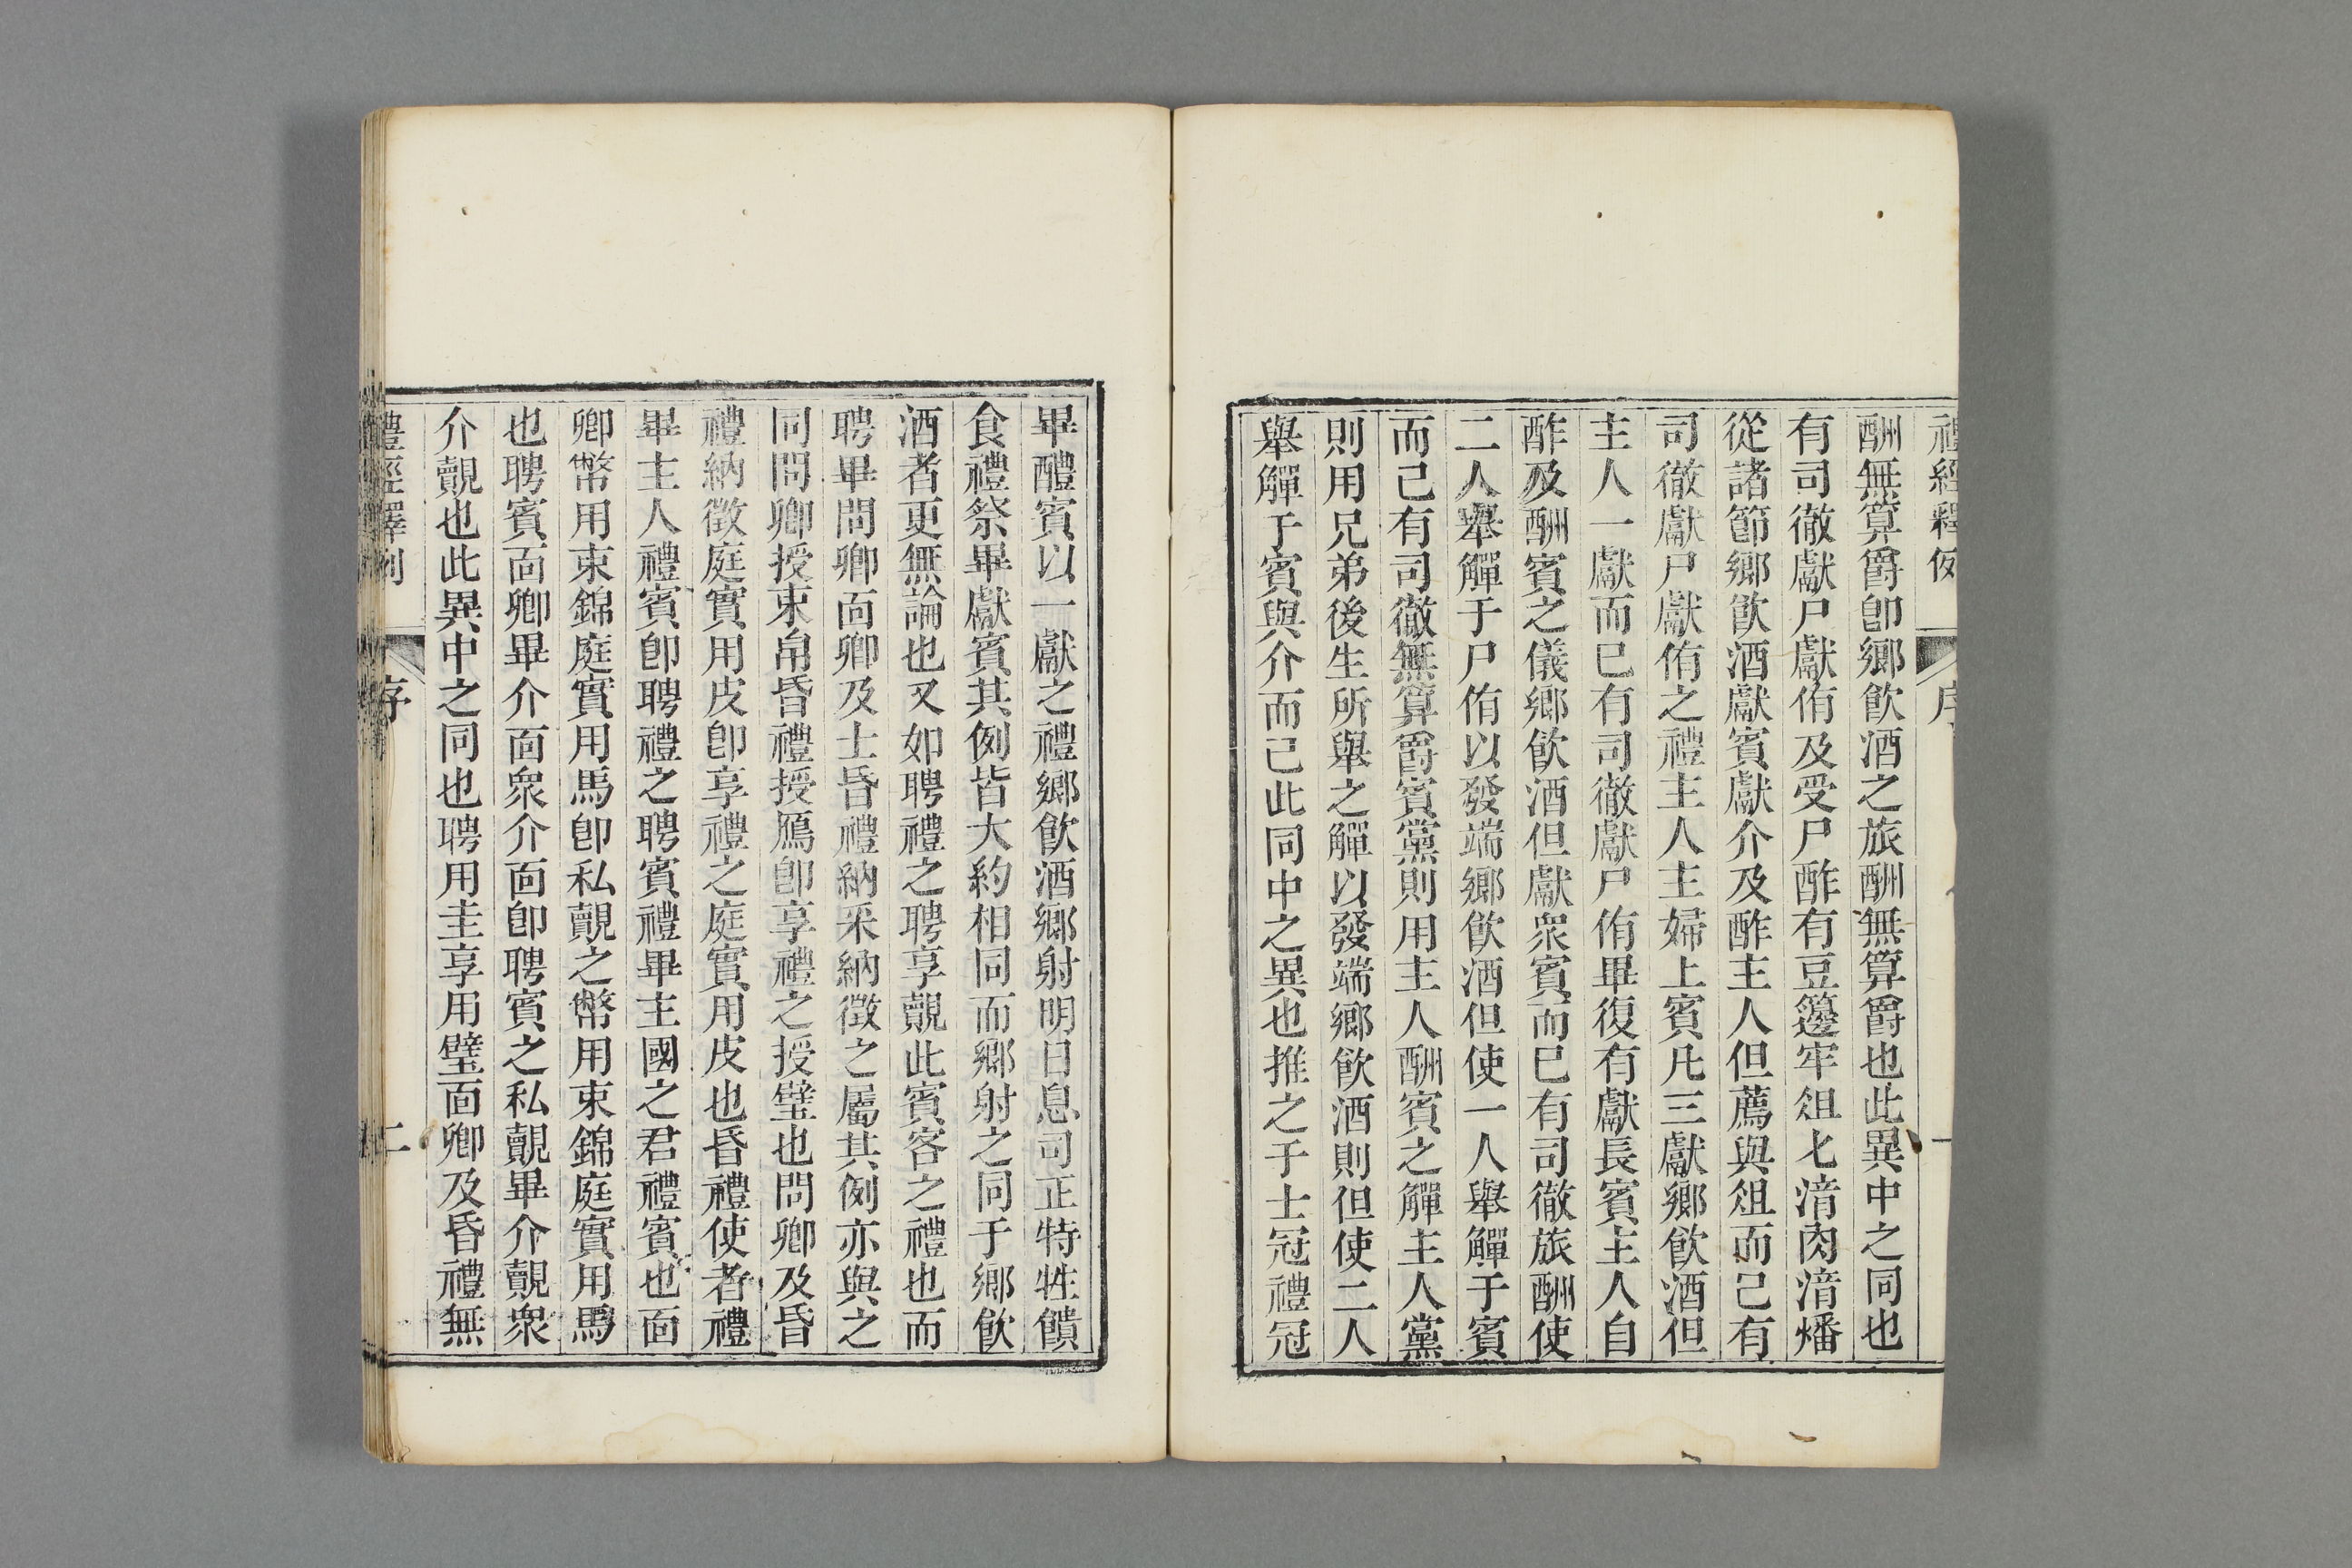 禮經釋例 序
酬無算爵卽鄉飮酒之旅酬無算爵也此異中之同也
有司徹獻尸獻侑及受尸酢有豆籩牢俎匕湆肉湆燔
從諸節鄉飮酒獻賓獻介及酢主人但薦與俎而已有
司徹獻尸獻侑之禮主人主婦上賓凡三獻鄉飮酒但
主人一獻而已有司徹獻尸侑畢復有獻長賓主人自
酢及酬賓之儀鄉飮酒但獻衆賓而已有司徹旅酬使
二人舉觶于尸侑以發端鄉飮酒但使一人舉觶于賓
而已有司徹無算爵賓黨則用主人酬賓之觶主人黨
則用兄弟後生所舉之觶以發端鄉飮酒則但使二人
舉觶于賓與介而已此同中之異也推之于士冠禮冠
畢醴賓以一獻之禮鄉飮酒鄉射明日息司正特牲饋
食禮祭畢獻賓其例皆大約相同而鄉射之同于鄉飮
酒者更無論也又如聘禮之聘享覿此賓客之禮也而
聘畢問卿面卿及士昏禮納采納徵之屬其例亦與之
同問卿授束帛昏禮授鴈卽享禮之授璧也問卿及昏
禮納徵庭實用皮卽享禮之庭實用皮也昏禮使者禮
畢主人禮賓卽聘禮之聘賓禮畢主國之君禮賓也面
卿幣用束錦庭實用馬卽私覿之幣用束錦庭實用馬
也聘賓面卿畢介面衆介面卽聘賓之私覿畢介覿衆
介覿也此異中之同也聘用圭享用璧面卿及昏禮無
禮經釋例 序 二